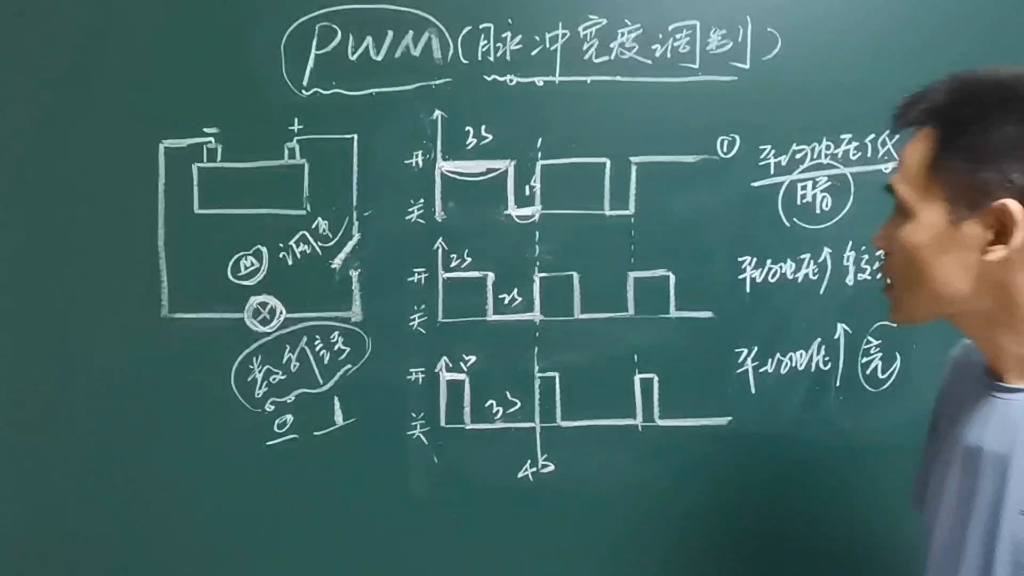 PWM(脉冲宽度调制)
- +
M 调
数字信号
0 1
开 3S ①
关 1S
平均电压低
暗
开 2S
关 2S
平均电压↑
开 1S
关 3S
平均电压↑ 亮
4S